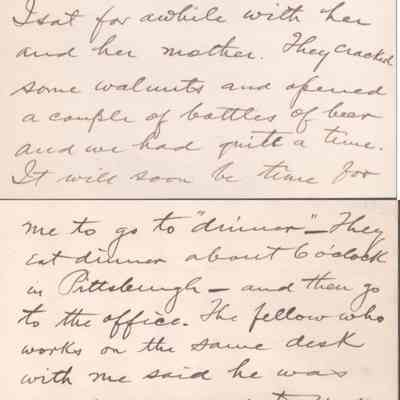 I sat for awhile with her
and her mother. They cracked
some walnuts and opened
a couple of bottles of beer
and we had quite a time.
It will soon be time for
me to go to "dinner" — They
eat dinner about 6 o'clock
in Pittsburgh — and then go
to the office. The fellow who
works on the same desk
with me said he was